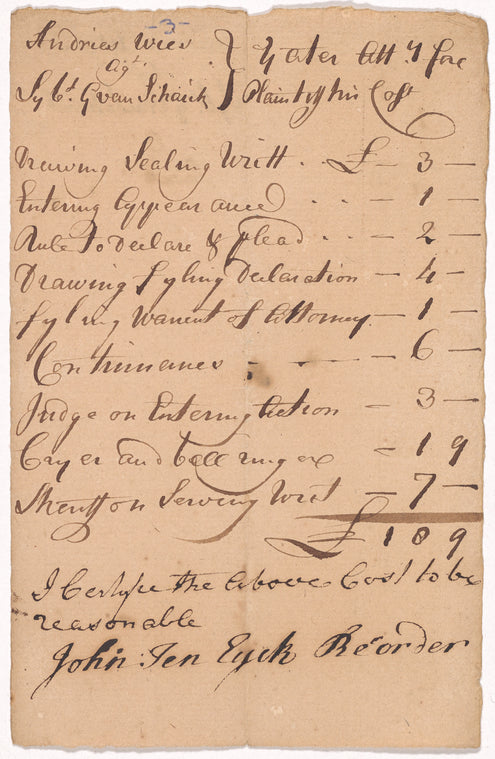 -3-
Andries wies } Yates Att.y fore
agt.
Sybt. G van Schaick } Plaintiff his Cost
Drawing Sealing Writt . . £ - 3 -
Entering appearance . . - 1 -
Rule to Declare & plead . . - 2 -
Drawing fyling Declaration - 4 -
fyling warent of Attorney - 1 -
Continuances - - 6 -
Judge on Entering action - 3 -
Cryer and bell ringer - 1 9
Sheriff on Serving Writ - 7 -
£ 1 8 9
I Certyfie the above Cost to be
reasonable
John Ten Eyck Recorder